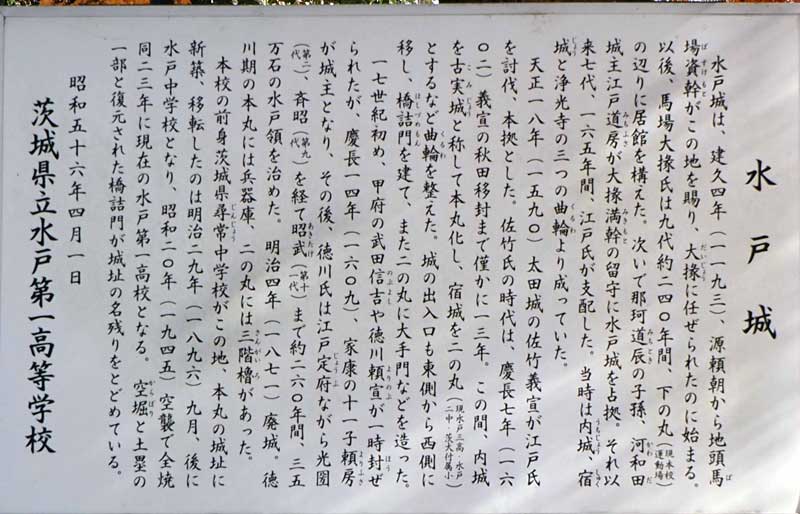 水戸城
水戸城は、建久四年（一一九三）、源頼朝から地頭馬
場資幹がこの地を賜り、大掾に任ぜられたのに始まる。
以後、馬場大掾氏は九代約二四〇年間、下の丸（現本校運動場）
の辺りに居館を構えた。次いで那珂道辰の子孫、河和田
城主江戸道房が大掾満幹の留守に水戸城を占拠。それ以
来七代、一六五年間、江戸氏が支配した。当時は内城、宿
城と浄光寺の三つの曲輪より成っていた。
天正一八年（一五九〇）太田城の佐竹義宣が江戸氏
を討伐、本拠とした。佐竹氏の時代は、慶長七年（一六
〇二）義宣の秋田移封まで僅かに一三年。この間、内城
を古実城と称して本丸化し、宿城を二の丸（現水戸三高・水戸二中・茨大付属小）
とするなど曲輪を整えた。城の出入口も東側から西側に
移し、橋詰門を建て、また二の丸に大手門などを造った。
一七世紀初め、甲府の武田信吉や徳川頼宣が一時封ぜ
られたが、慶長一四年（一六〇九）、家康の十一子頼房
が城主となり、その後、徳川氏は江戸定府ながら光圀
（第二代）、斉昭（第九代）を経て昭武（第十一代）まで約二六〇年間、三五
万石の水戸領を治めた。明治四年（一八七一）廃城。徳
川期の本丸には兵器庫、二の丸には三階櫓があった。
本校の前身茨城県尋常中学校がこの地、本丸の城址に
新築、移転したのは明治二九年（一八九六）九月、後に
水戸中学校となり、昭和二〇年（一九四五）空襲で全焼
同二三年に現在の水戸第一高校となる。空堀と土塁の
一部と復元された橋詰門が城址の名残りをとどめている。
昭和五十六年四月一日
茨城県立水戸第一高等学校